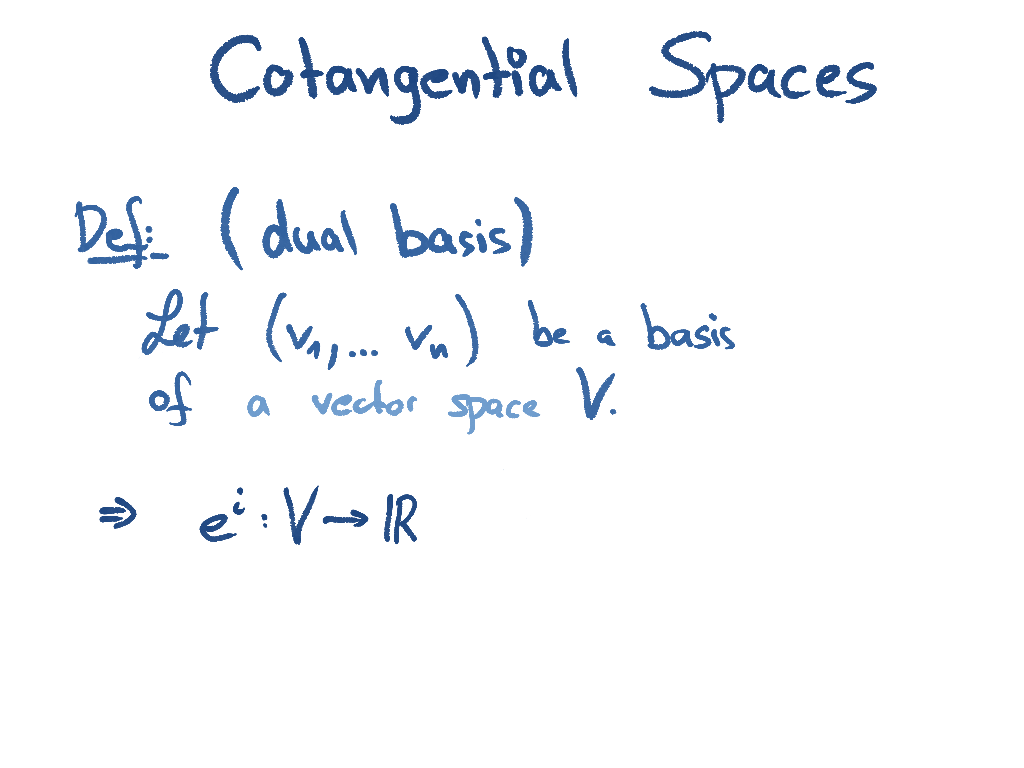 Cotangential Spaces
Def: (dual basis)
Let (v₁,... vₙ) be a basis
of a vector space V.
⇒ eⁱ : V → ℝ